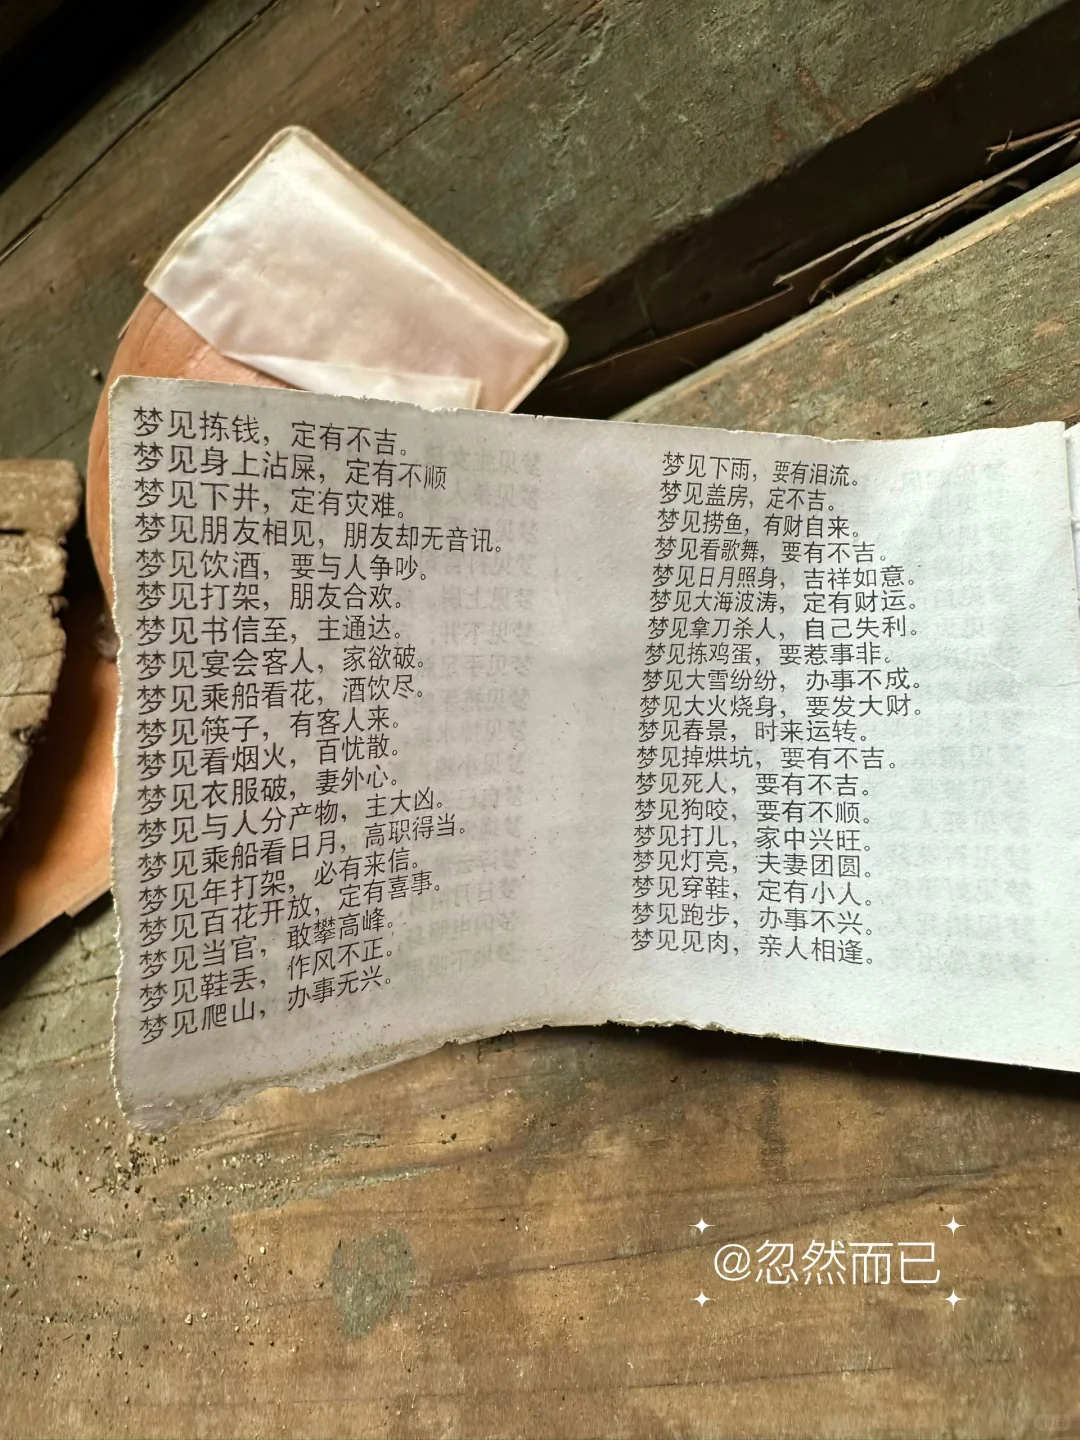 梦见拣钱，定有不吉。
梦见身上沾屎，定有不顺
梦见下井，定有灾难。
梦见朋友相见，朋友却无音讯。
梦见饮酒，要与人争吵。
梦见打架，朋友合欢。
梦见书信至，主通达。
梦见宴会客人，家欲破。
梦见乘船看花，酒饮尽。
梦见筷子，有客人来。
梦见看烟火，百忧散。
梦见衣服破，妻外心。
梦见与人分产物，主大凶。
梦见乘船看日月，高职得当。
梦见年打架，必有来信。
梦见百花开放，定有喜事。
梦见当官，敢攀高峰。
梦见鞋丢，作风不正。
梦见爬山，办事无兴。
梦见下雨，要有泪流。
梦见盖房，定不吉。
梦见捞鱼，有财自来。
梦见看歌舞，要有不吉。
梦见日月照身，吉祥如意。
梦见大海波涛，定有财运。
梦见拿刀杀人，自己失利。
梦见拣鸡蛋，要惹事非。
梦见大雪纷纷，办事不成。
梦见大火烧身，要发大财。
梦见春景，时来运转。
梦见掉烘坑，要有不吉。
梦见死人，要有不吉。
梦见狗咬，要有不顺。
梦见打儿，家中兴旺。
梦见灯亮，夫妻团圆。
梦见穿鞋，定有小人。
梦见跑步，办事不兴。
梦见见肉，亲人相逢。
@忽然而已